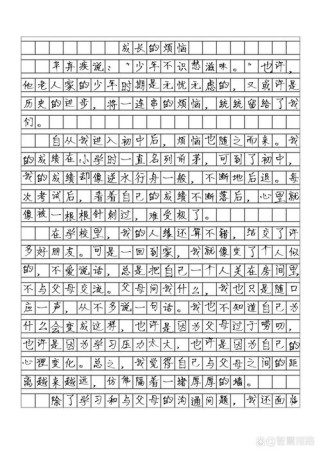 成长的烦恼
辛弃疾说："少年不识愁滋味。"也许，
他老人家的少年时期是无忧无虑的，又或许是
历史的进步，将一连串的烦恼，跳跳留给了我
们。
自从我进入初中后，烦恼也随之而来。我
的成绩在小学时一直名列前茅，可到了初中，
我的成绩却像逆水行舟一般，不断地后退。每
次考试后，看着自己的成绩不断落后，心里就
像被一根根针刺过，难受极了。
在学校里，我的人缘还算不错，结交了许
多好朋友。可是一回到家，我就像变了个人似
的，不爱说话，总是把自己一个人关在房间里
不与父母交流。父母问我什么，我也只是随口
应一声，从不多说一句话。我也不知道自己为
什么会变成这样，也许是因为父母过于唠叨，
也许是因为学习压力太大，也许是因为自己的
心理变化。总之，我觉得自己与父母之间的距
离越来越远，仿佛隔着一堵厚厚的墙。
除了学习和与父母的沟通问题，我还面临